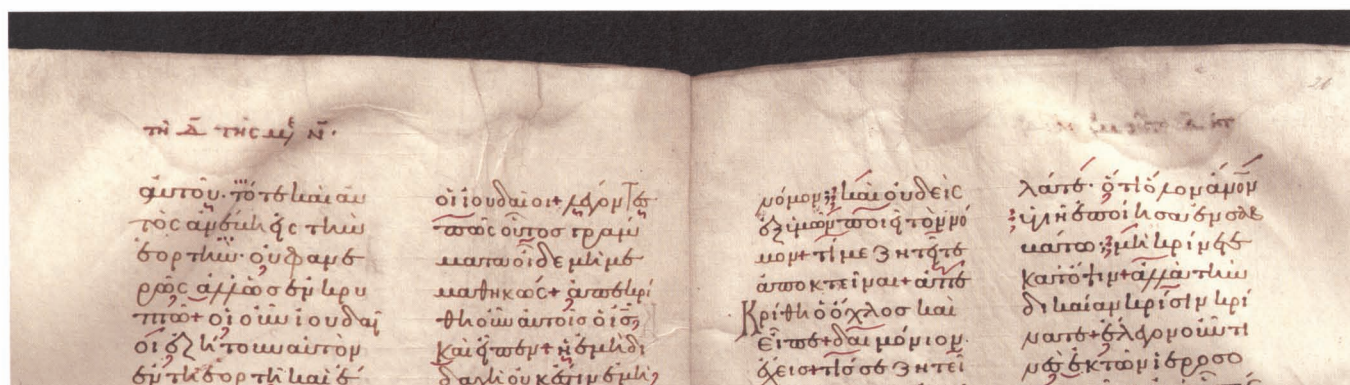 τῇ Δ̅ τῆς με Ν̅·
αὐτοῦ· τότε καὶ αὐ
τὸς ἀνέβη εἰς τὴν
ἑορτήν· οὐ φανε
ρῶς ἀλλ' ὡς ἐν κρυ
πτῶ+ οἱ οὖν ἰουδαῖ
οι ἐζήτουν αὐτὸν
ἐν τῆ ἑορτῆ καὶ ἔ
οἱ ἰουδαῖοι+ λέγοντες
πῶς οὗτος γράμ
ματα οἶδε μὴ με
μαθηκώς+ ἀπεκρί
θη οὖν αὐτοῖς ὁ ι̅ς̅,
καὶ εἶπεν+ ἡ ἐμὴ δι
δαχὴ οὐκ ἔστιν ἐμὴ,
νόμον; καὶ οὐδεὶς
ἐξ ὑμῶν ποιεῖ τὸν νό
μον+ τί με ζητεῖτε
ἀποκτεῖναι+ ἀπε
Κρίθη ὁ ὄχλος καὶ
εἶπε+ δαιμόνιον
ἔχεις+ τίς σε ζητεῖ
λᾶτε· ὅτι ὅλον ἄν̅ο̅ν̅
ὑγιῆ ἐποίησα ἐν σαβ
βάτω; μὴ κρίνετε
κατ' ὄψιν+ ἀλλὰ τὴν
δικαίαν κρίσιν κρί
νατε+ ἔλεγον οὖν τι
νὲς ἐκ τῶν ἱεροσο